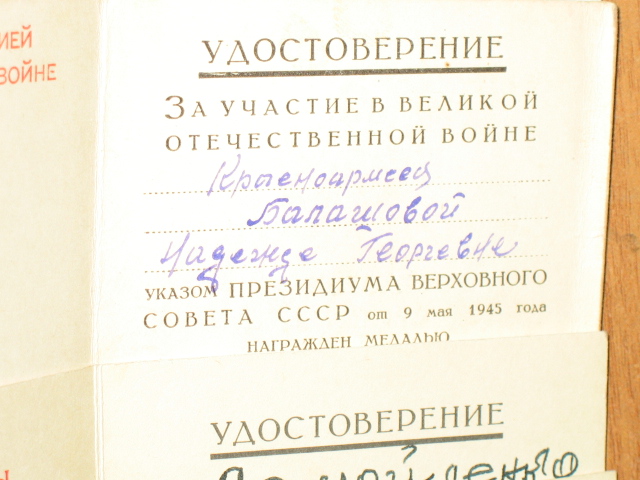 ИЕЙ
ВОЙНЕ
УДОСТОВЕРЕНИЕ
ЗА УЧАСТИЕ В ВЕЛИКОЙ
ОТЕЧЕСТВЕННОЙ ВОЙНЕ
Красноармеец
Балашовой
Надежде Георгиевне
УКАЗОМ ПРЕЗИДИУМА ВЕРХОВНОГО
СОВЕТА СССР от 9 мая 1945 года
НАГРАЖДЕН МЕДАЛЬЮ
УДОСТОВЕРЕНИЕ